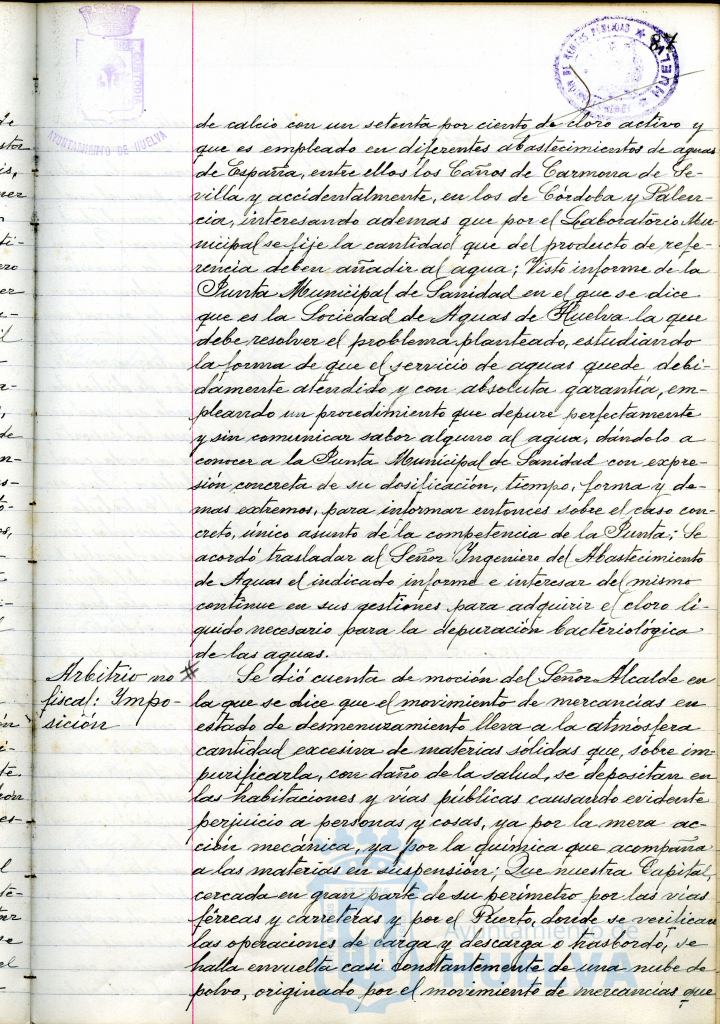 AYUNTAMIENTO DE HUELVA
de calcio con un setenta por ciento de cloro activo y
que es empleado en diferentes abastecimientos de aguas
de España, entre ellos los Caños de Carmona de Se-
villa y accidentalmente, en los de Córdoba y Palen-
cia, interesando ademas que por el Laboratorio Mu-
nicipal se fije la cantidad que del producto de refe-
rencia deben añadir al agua; Visto informe de la
Junta Municipal de Sanidad en el que se dice
que es la Sociedad de Aguas de Huelva la que
debe resolver el problema planteado, estudiando
la forma de que el servicio de aguas quede debi-
dámente atendido y con absoluta garantía, em-
pleando un procedimiento que depure perfectamente
y sin comunicar sabor alguno al agua, dándolo a
conocer a la Junta Municipal de Sanidad con expre-
sión concreta de su dosificación, tiempo, forma y de-
mas extremos, para informar entonces sobre el caso con-
creto, único asunto de la competencia de la Junta; Se
acordó trasladar al Señor Ingeniero del Abastecimiento
de Aguas el indicado informe e interesar del mismo
continue en sus gestiones para adquirir el cloro li-
quido necesario para la depuración bacteriológica
de las aguas.
Arbitrio no
fiscal: Impo-
sición
# Se dió cuenta de moción del Señor Alcalde en
la que se dice que el movimiento de mercancías en
estado de desmenuzamiento lleva a la atmósfera
cantidad excesiva de materias sólidas que, sobre im-
purificarla, con daño de la salud, se depositan en
las habitaciones y vías públicas causando evidente
perjuicio a personas y cosas, ya por la mera ac-
ción mecánica, ya por la química que acompaña
a las materias en suspensión; Que nuestra Capital,
cercada en gran parte de su perímetro por las vías
férreas y carreteras y por el Puerto, donde se verifican
las operaciones de carga y descarga o trasbordo, se
halla envuelta casi constantemente de una nube de
polvo, originado por el movimiento de mercancías que
Ayuntamiento de
HUELVA